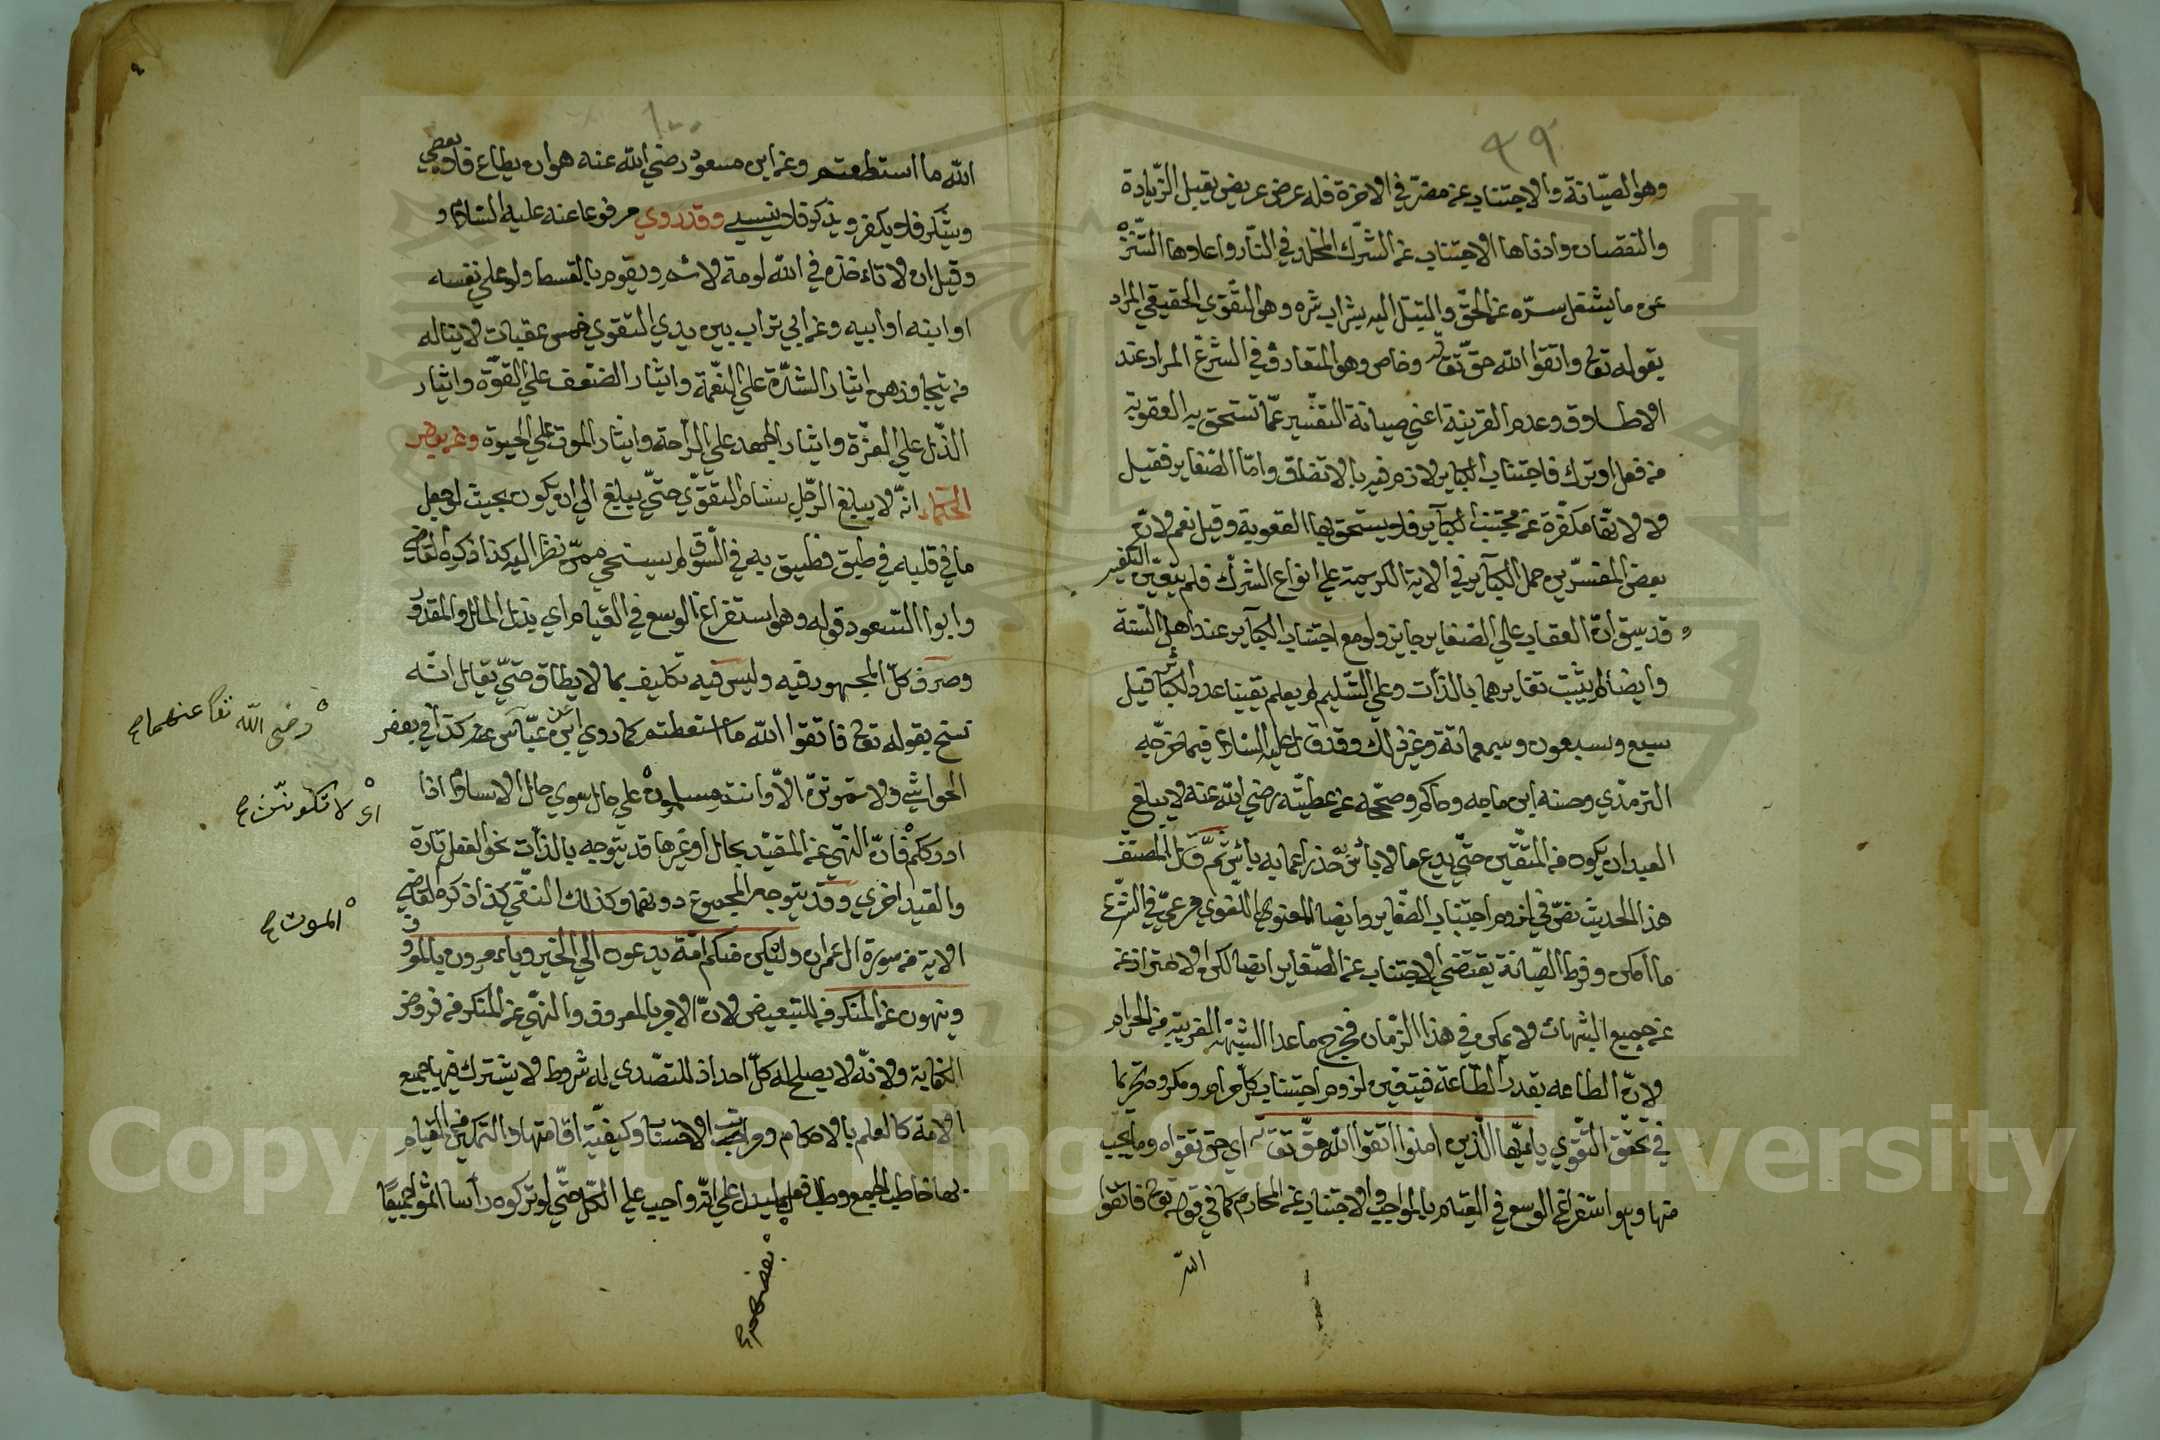 ٩٩
وهو الصّيانة والاجتناب عن مضرّ في الاخرة فله عرض عريض يقبل الزّيادة
والنقصان وادناها الاجتناب عن الشّرك المخلد في النّار واعلاها التّنزّه
عن ما يشتغل سرّه عن الحقّ والتبتل اليه بشراشره وهو التقوي الحقيقي المراد
بقوله تعالى واتقوا الله حقّ تقاته وخاص وهو المتعارف في الشرع المراد عند
الاطلاق وعدم القرينة اعني صيانة النفس عمّا تستحق به العقوبة
من فعل او ترك فاجتناب الكباير لازم فيه بالاتفاق وامّا الصّغاير فقيل
لا لانّها مكفّرة عن مجتنب الكبآير فلا يستحق بها العقوبة وقيل نعم لانّ
بعض المفسّرين حمل الكبآير في الاية الكريمة على انواع الشرك فلم يتعيّن التكفير
قد سبق انّ العقاب علي الصّغاير جايز ولو مع اجتناب الكبآير عند اهل السّنة
وايضا لم يثبت تغايرهما بالذّات وعلي التّسليم لم يعلم يقينا عدد الكبآئر قيل
سبع وسبعون وسبعمائة وغير ذلك وقد قال عليه السّلام فيما خرّجه
الترمذي وحسنه ابن ماجه وحاكم وصحّحه عن عطيّه رضي الله عنه لا يبلغ
العبد ان يكون من المتّقين حتّي يدع ما لا بائس به حذرا عما به بائس ثمّ قال المصنّف
هذا الحديث نصّ في لزوم اجتناب الصّغاير وايضا المعنوي اللّغوي مرعيّ في الشّرع
ما امكن وفرط الصّيانة يقتضي الاجتناب عن الصّغاير ايضا لكن الاحتراز عن
عن جميع الشبهات لا يمكن في هذا الزّمان فخرج ما عدا الشبهة القريبة من الحرام
ولانّ الطاعه بقدر الطّاعة فيتعين لزوم اجتناب كلّ حرام ومكروه تحريما
في تحقّق التّقوي يا ايّها الّذين امنوا اتقوا الله حقّ تقاته اي حق تقواه وما يجب
منها وهو استفراغ الوسع في القيام بالمواجب والاجتناب عن المحارم كما في قوله تعالى فاتقوا
الله
١٠٠
الله ما استطعتم وعن ابن مسعود رضي الله عنه هو ان يطاع فلا يعصي
ويشكر فلا يكفر ويذكر فلا ينسي وقد روي مرفوعا عنه عليه السّلام و
وقيل ان لا تاءخذه في الله لومة لائم ويقوم بالقسط ولو علي نفسه
او ابنه او ابيه وعن ابي تراب بين يدي التقوي خمس عقبات لا يناله
من يتجاوزهن ايثار الشدّة علي النعّمة وايثار الضّعف علي القوّة وايثار
الذّل علي العزّة وايثار الجهد علي الرّاحة وايثار الموت علي الحيوة وعن بعض
الحكماء انّه لا يبلغ الرّجل سنام التقوّي حتّي يبلغ الي ان يكون بحيث لو جعل
ما في قلبه في طبق فطيف به في السّوق لم يستحي ممّن نظر اليه كذا ذكره القاضي
وابوا السّعود قوله وهو استفراغ الوسع في القيام اي بذل المال والمقدور
وصرف كلّ المجهود فيه وليس فيه تكليف بما لا يطاق حتّي يقال انّه
نسخ بقوله تعالى فاتقوا الله ما استطعتم كما روي عن ابن عبّاس كذا في بعض
الحواشي ولا تموتنّ الاّ وانتم مسلمون علي حال سوي حال الاسلام اذا
ادرككم فانّ النّهي عن المقيّد بحال او غيرها قد يتوجه بالذّات نحو الفعل تارة
والقيد اخري وقد يتوجه المجموع دونهما وكذلك النّفي كذا ذكره القاضي
الاية من سورة ال عمران ولتكن منكم امّة يدعون الي الخير وياءمرون بالمعروف
وينهون عن المنكر من للتبعيض لانّ الامر بالمعروف والنهّي عن المنكر من فروض
الكفاية ولانّه لا يصلح له كلّ احد اذ للمتصّدي له شروط لا يشترك فيها جميع
الامة كالعلم بالاحكام ومراتب الاحتساب وكيفيّة اقامتها والتمكن من القيام
بها خاطب الجميع وطلب فعل بعضهم ليدل علي انّه واجب علي الكّل حتّي لو تركوه رأسا اثموا جميعًا
رضي الله تعا عنهما صح
اي لا تكوننّ صح
الموت صح
بعضهم صح
Copyright © King Saud University